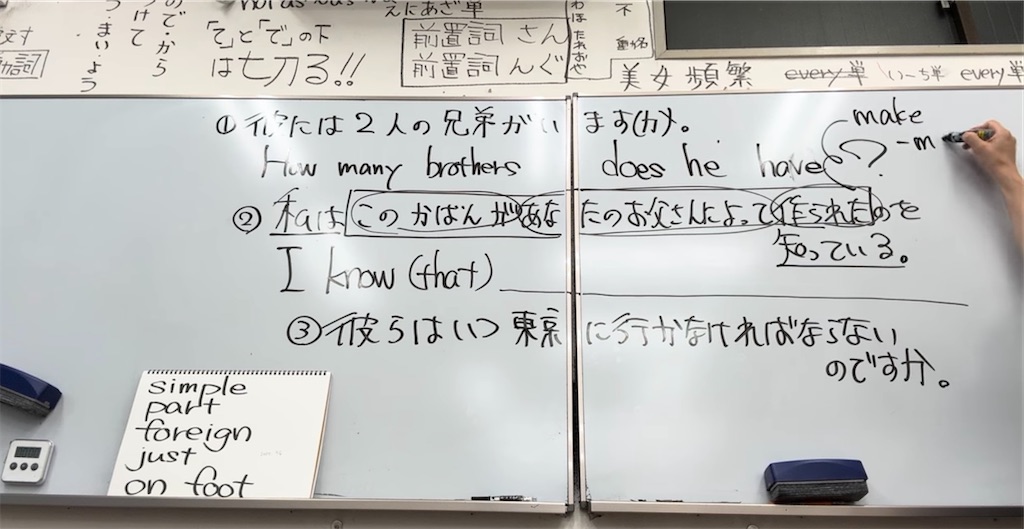 not as
えにあざ単
ので・から
つけて
う・まい・よう
「て」と「で」の下
は七刀る!!
前置詞 さん
前置詞 んぐ
不
動名
美女頻繁 every単 い〜ち単 every単
① 彼には2人の兄弟がいますか。
How many brothers does he have?
make
-m
② 私はこのかばんがあなたのお父さんによって作られたのを
知っている。
I know (that)
③ 彼らはいつ東京に行かなければならない
のですか。
simple
part
foreign
just
on foot